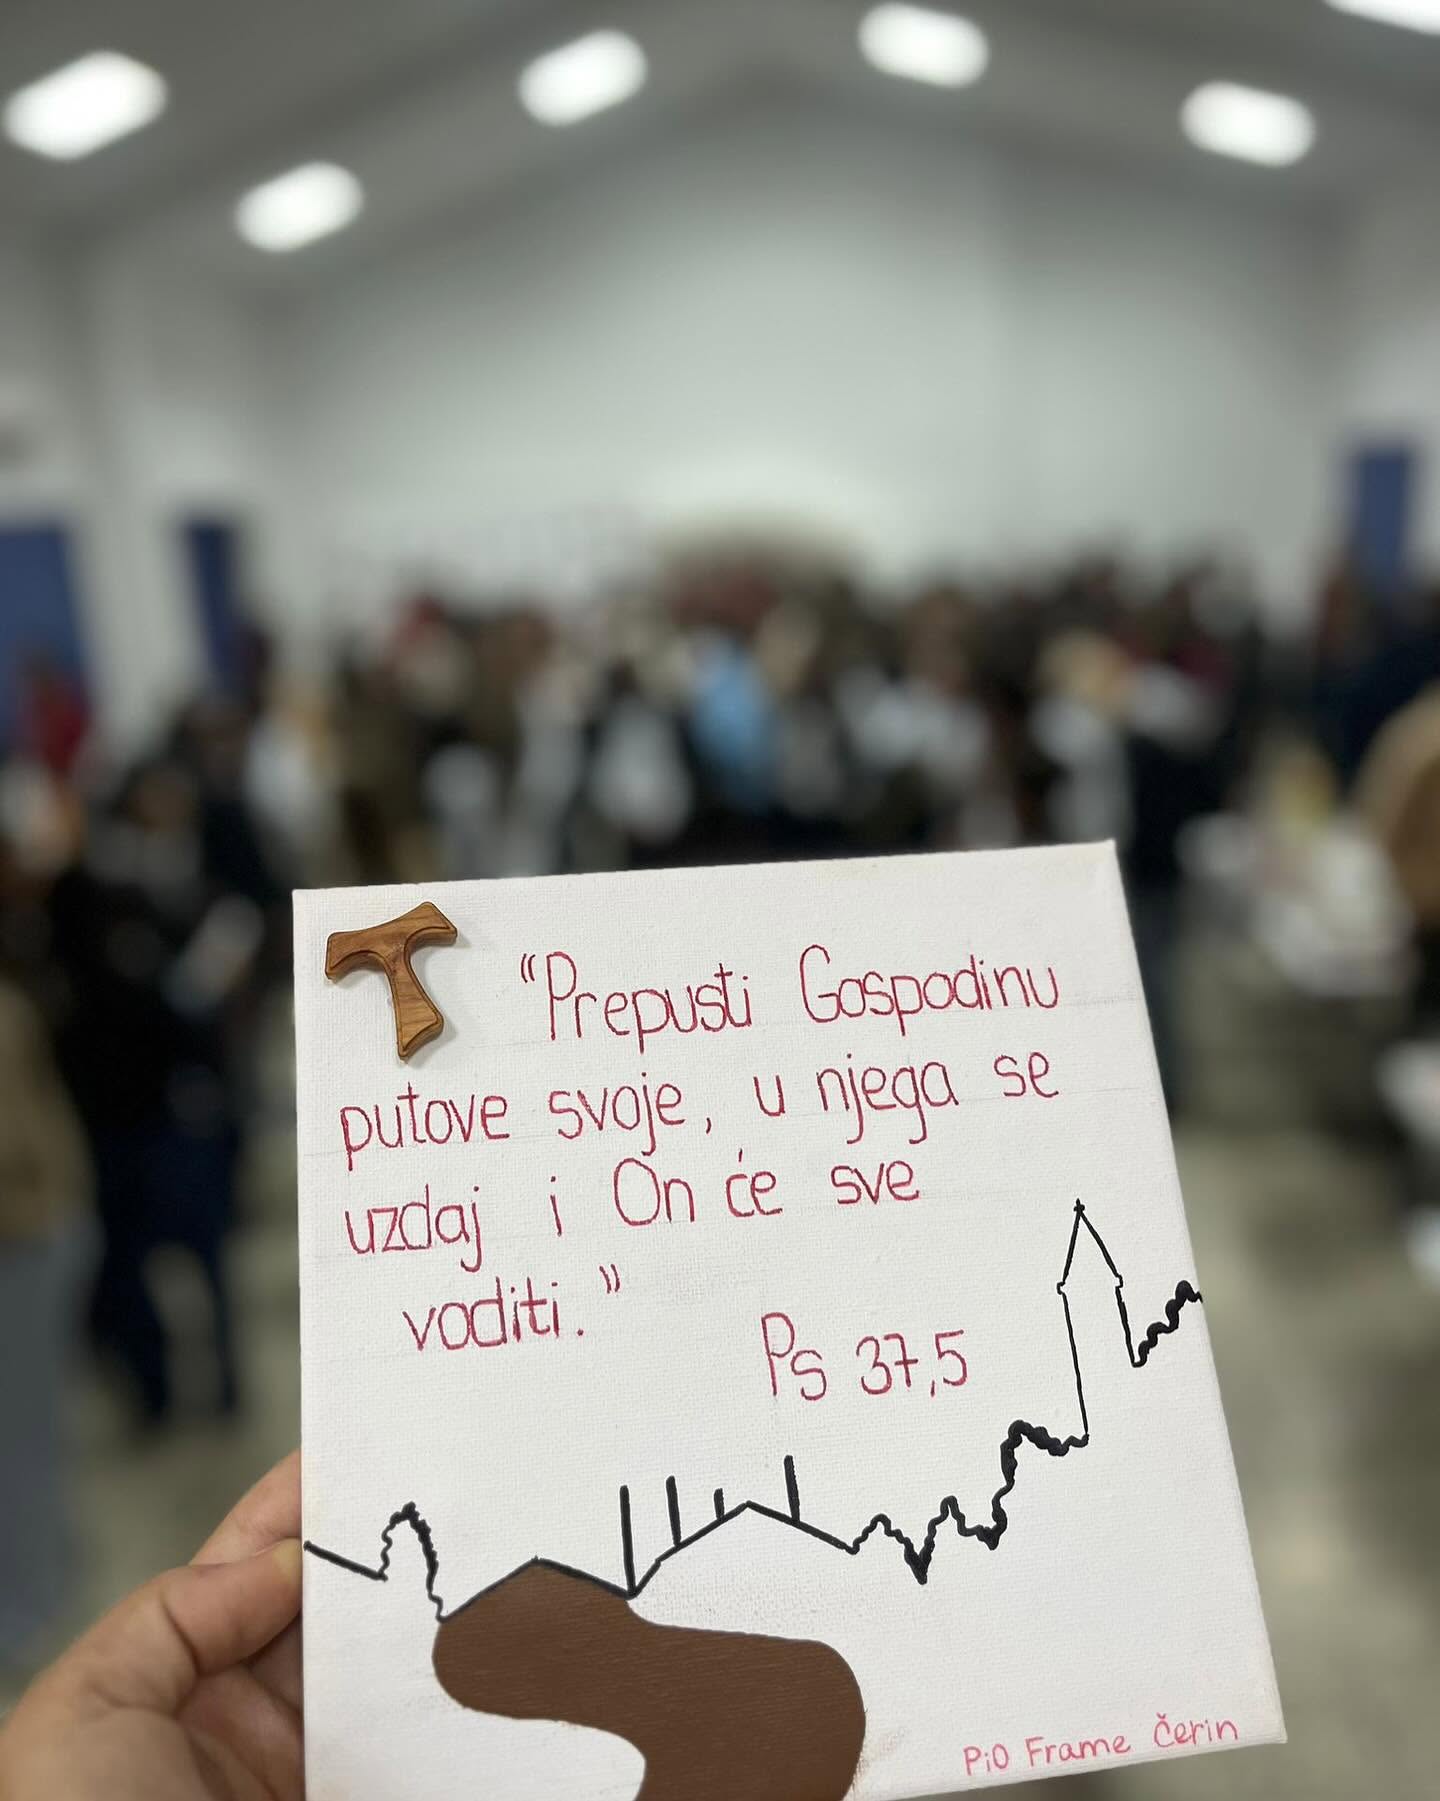 “Prepusti Gospodinu
putove svoje, u njega se
uzdaj i On će sve
voditi.”
Ps 37,5
PiO Frame Čerin